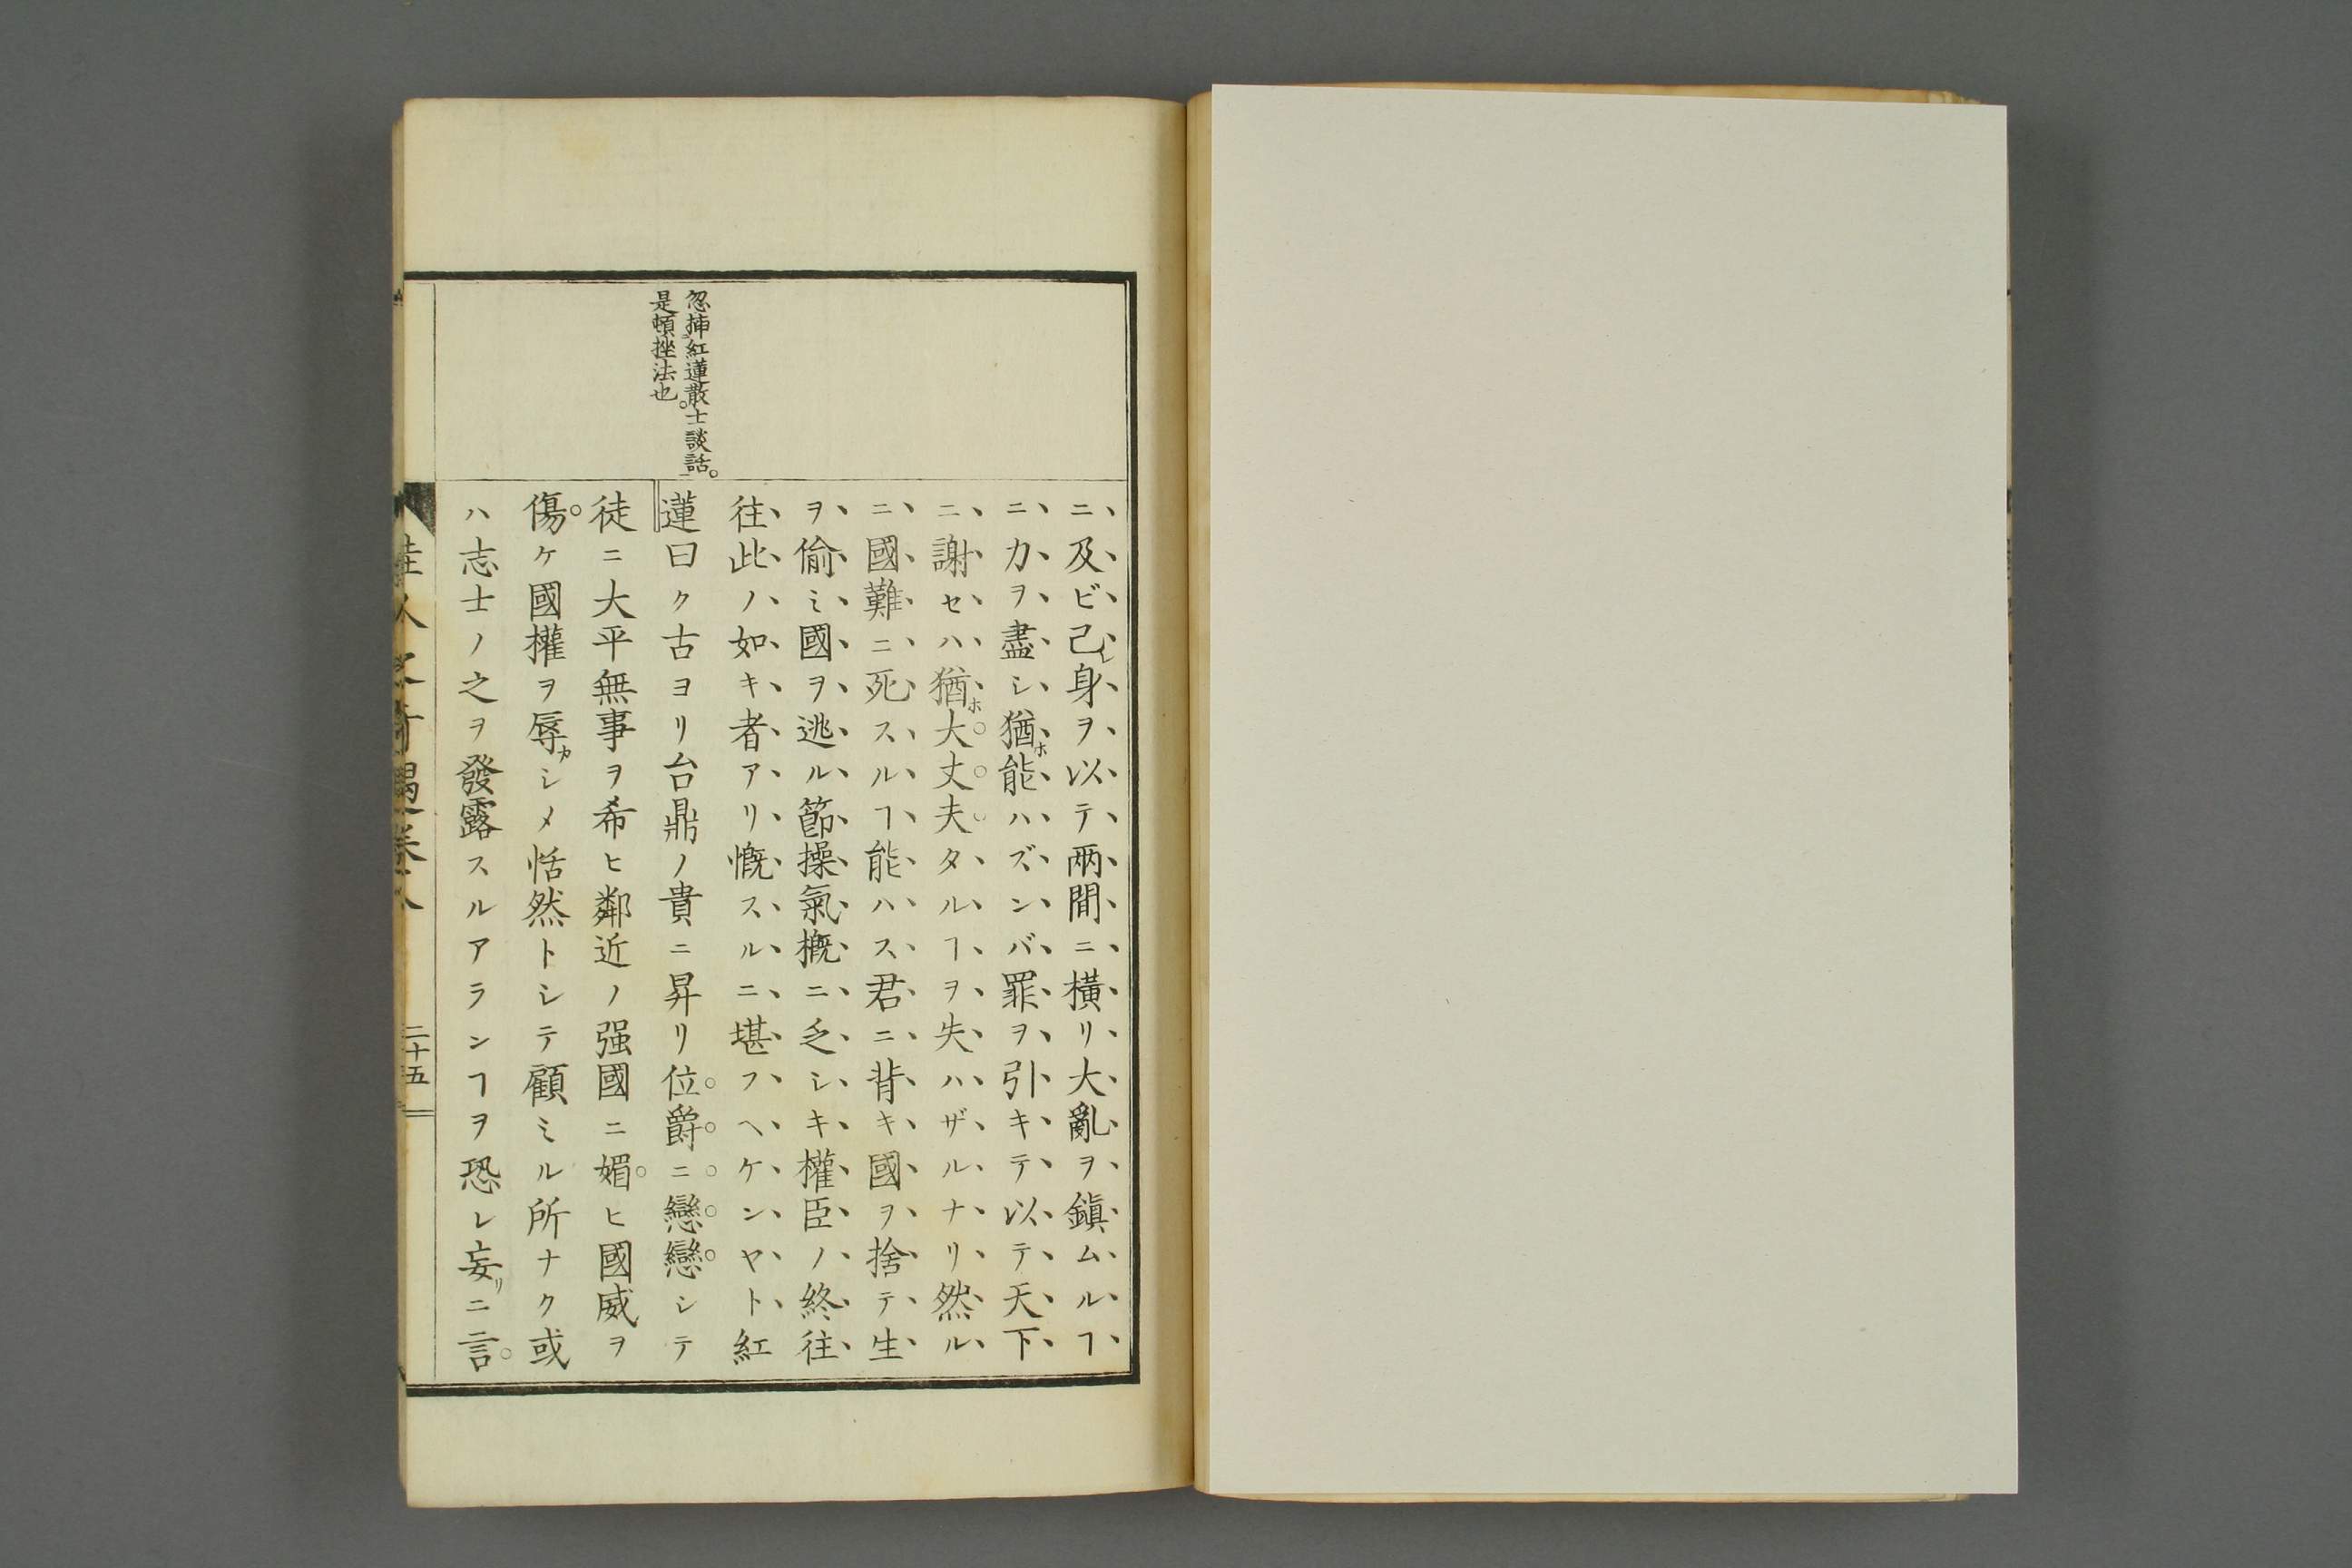 忽挿紅蓮散士談話。
是頓挫法也。
ニ及ビ己レ身ヲ以テ兩間ニ橫リ大亂ヲ鎭ムルヿ
ニ力ヲ盡シ猶ホ能ハズンバ罪ヲ引キテ以テ天下
ニ謝セハ猶ホ大丈夫タルヿヲ失ハザルナリ然ル
ニ國難ニ死スルヿ能ハス君ニ背キ國ヲ捨テ生
ヲ偷ミ國ヲ逃ル節操氣概ニ乏シキ權臣ノ終往
往此ノ如キ者アリ慨スルニ堪フヘケンヤト紅
蓮曰ク古ヨリ台鼎ノ貴ニ昇リ位爵ニ戀戀シテ
徒ニ大平無事ヲ希ヒ鄰近ノ强國ニ媚ヒ國威ヲ
傷ケ國權ヲ辱カシメ恬然トシテ顧ミル所ナク或
ハ志士ノ之ヲ發露スルアランヿヲ恐レ妄リニ言
佳人之奇遇卷八
二十五